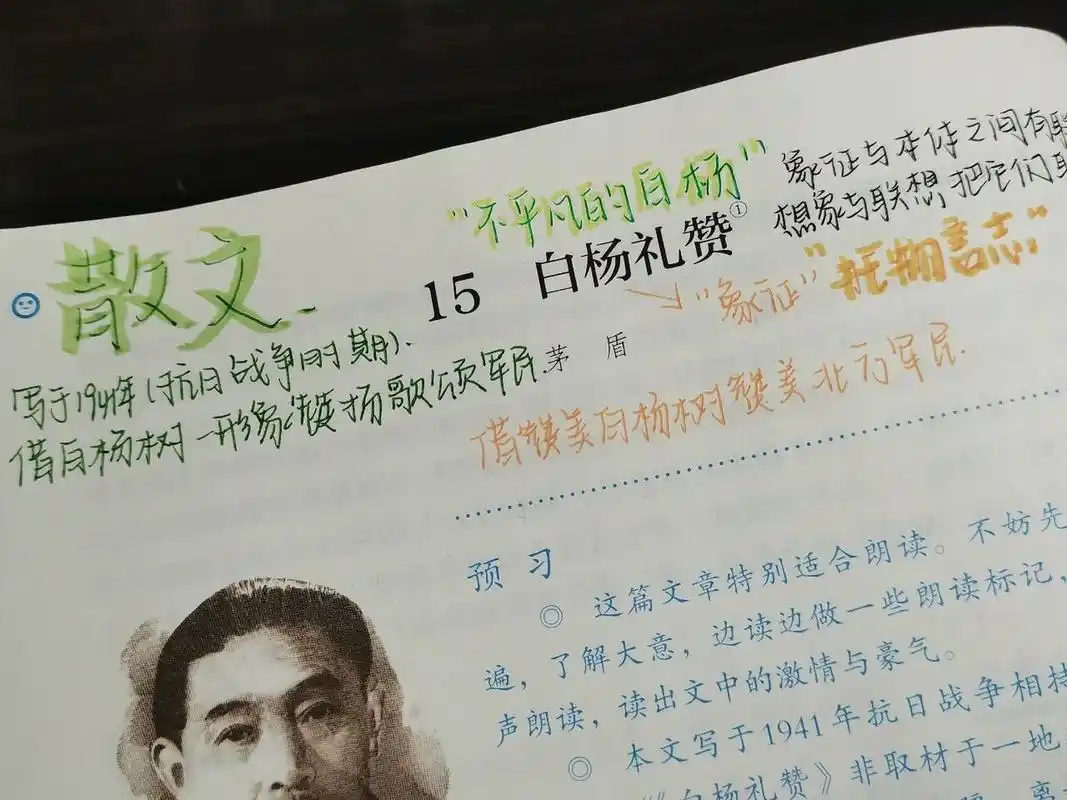 "不平凡的白杨"
象征与本体之间有联
想象与联想把它们
散文.
15 白杨礼赞①
"象征" "托物言志"
写于1941年(抗日战争时期).
茅 盾
借白杨树一形象赞扬歌颂军民.
借赞美白杨树赞美北方军民.
预 习
◎ 这篇文章特别适合朗读。不妨先
遍，了解大意，边读边做一些朗读标记，
声朗读，读出文中的激情与豪气。
◎ 本文写于1941年抗日战争相持
《白杨礼赞》非取材于一地